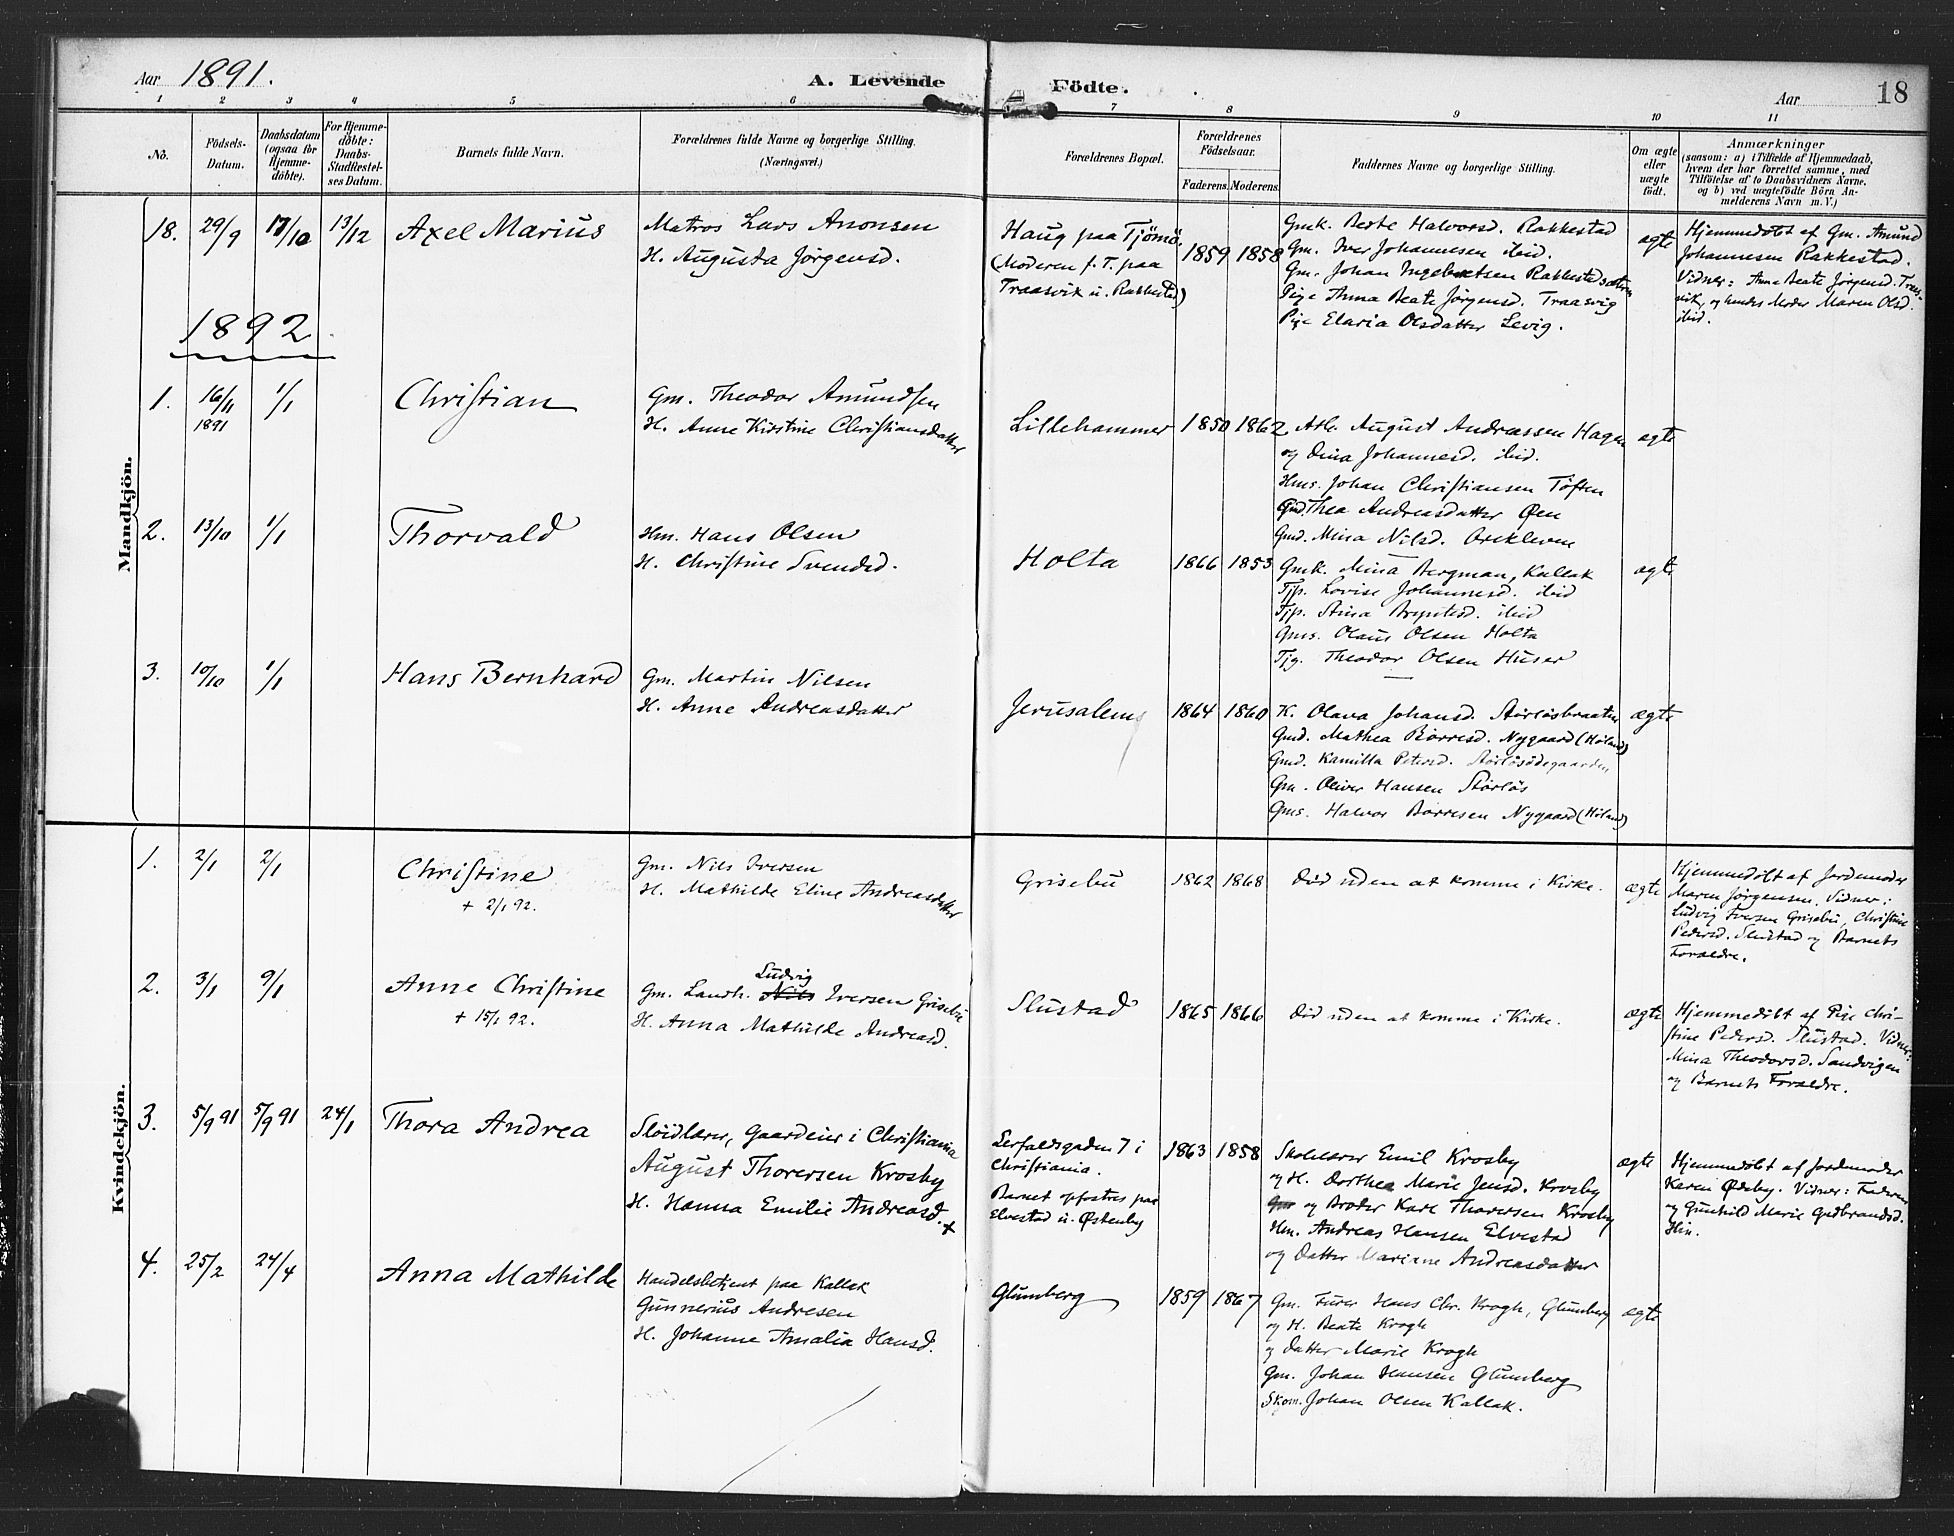 Aar 1891.
A. Levende Födte.
Aar
18
1 2 3 4 5 6 7 8 9 10 11
No.
Födsels-Datum.
Daabsdatum (ogsaa for Hjemme-döbte).
For Hjemme-döbte: Daabs-Stadfæstel-ses Datum.
Barnets fulde Navn.
Forældrenes fulde Navne og borgerlige Stilling.
(Næringsvei.)
Forældrenes Bopæl.
Forældrenes Födselsaar.
Faderens. Moderens.
Faddernes Navne og borgerlige Stilling.
Om ægte eller uægte födt.
Anmærkninger
(saasom: a) i Tilfælde af Hjemmedaab,
hvem der har forrettet samme, med
Tilföielse af to Daabsvidners Navne.
og b) ved uægtefödte Börn An-
melderens Navn m. V.)
Mandkjön.
18. 29/9 17/10 13/12 Axel Marius
Matros Lars Anonsen
H. Augusta Jørgensd.
Haug paa Tjömö.
(Moderen f. T. paa
Traasvik u. Rakkestad)
1859 1858
Gmk. Beate Halvorsd. Rakkestad
Gm. Iver Johannesen ibid.
Gm. Johan Ingebretsen Rakkestadsæteren
Pige Anna Beate Jørgensd. Traasvig
Pige Elaria Olsdatter Levig.
ægte
Hjemmedöbt af Gm. Amund
Johannesen Rakkestad.
Vidner: Anna Beate Jørgensd. Traas-
vik, og hendes Moder Maren Olsd.
ibid.
1892
1. 16/11 1891 1/1 Christian
Gm. Theodor Amundsen
H. Anne Kirstine Christiansdatter
Lillehammer 1850 1862
Arb. August Andreassen Hagen
og Dina Johannesd. ibid.
Hms. Johan Christiansen Töften
Gmd Thea Andreasdatter Øen
Gmd. Mina Nilsd. Orekleven
ægte
2. 13/10 1/1 Thorvald
Hm. Hans Olsen
H. Christine Svendsd.
Holta 1866 1853
Gmk. Mina Bergman, Kallak
Tjp. Lovise Johannesd. ibid
Tjp. Stina Bryntesd. ibid
Gms. Olaus Olsen Holta
Tjg. Theodor Olsen Huser
ægte
3. 10/10 1/1 Hans Bernhard
Gm. Martin Nilsen
H. Anne Andreasdatter
Jerusalem 1864 1860
K. Olava Johansd. Störlösbraaten
Gmd. Mathea Börresd. Nygaard (Höland)
Gmd. Kamilla Petersd. Störlösödegaarden
Gm. Oliver Hansen Störlös
Gms. Halvor Börresen Nygaard (Höland)
ægte
Kvindekjön.
1. 2/1 2/1 Christine
+ 2/1 92.
Gm. Nils Iversen
H. Mathilde Eline Andreasdatter
Grisebu 1862 1868 Död uden at komme i Kirke. ægte
Hjemmedöbt af Jordemoder
Maren Jørgensen. Vidner:
Ludvig Iversen Grisebu, Christine
Pedersd. Slustad og Barnets
Forældre.
2. 3/1 9/1 Anne Christine
+ 15/1 92.
Gm. Landh. Nils Ludvig Iversen Grisebu
H. Anna Mathilde Andreasd.
Slustad 1865 1866 Död uden at komme i Kirke. ægte
Hjemmedöbt af Pige Chri-
stine Pedersd. Slustad. Vidner:
Mina Theodorsd. Sandvigen
og Barnets Forældre.
3. 5/9 91 5/9 91 24/1 Thora Andrea
Slöidlærer, Gaardeier i Christiania
August Thoresen Krosby
H. Hanna Emilie Andreasd. +
Lerfaldsgaden 7 i
Christiania.
Barnet opfostres paa
Elvestad u. Østenby
1863 1858
Skolelærer Emil Krosby
og H. Dorthea Marie Jensd. Krosby
og Broder Karl Thoresen Krosby
Hm. Andreas Hansen Elvestad
og Datter Mariane Andreasdatter
ægte
Hjemmedöbt af Jordemoder
Karen Ødeby. Vidner: Faderen
og Gunhild Marie Gudbrandsd.
4. 25/2 24/4 Anna Mathilde
Handelsbetjent paa Kallak
Gunnerius Andresen
H. Johanne Amalia Hansd.
Glumberg 1859 1867
Gm. Furer Hans Chr. Krogh, Glumberg
og H. Beate Krogh
og Datter Marie Krogh
Gm. Johan Hansen Glumberg
Skom. Johan Olsen Kallak.
ægte